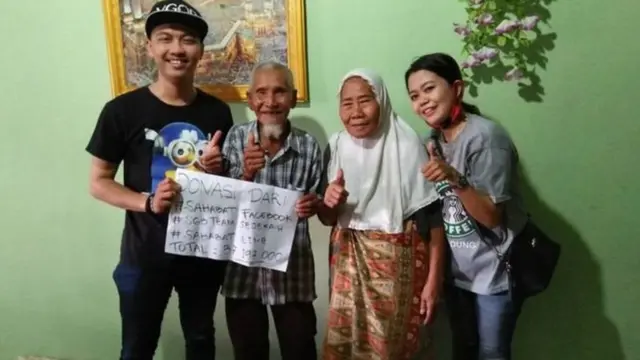 VGOD
DONASI DARI
#SAHABAT FACEBOOK
#SGB TEAM SEDEKAH
#SAHABAT LINE
COFFEE